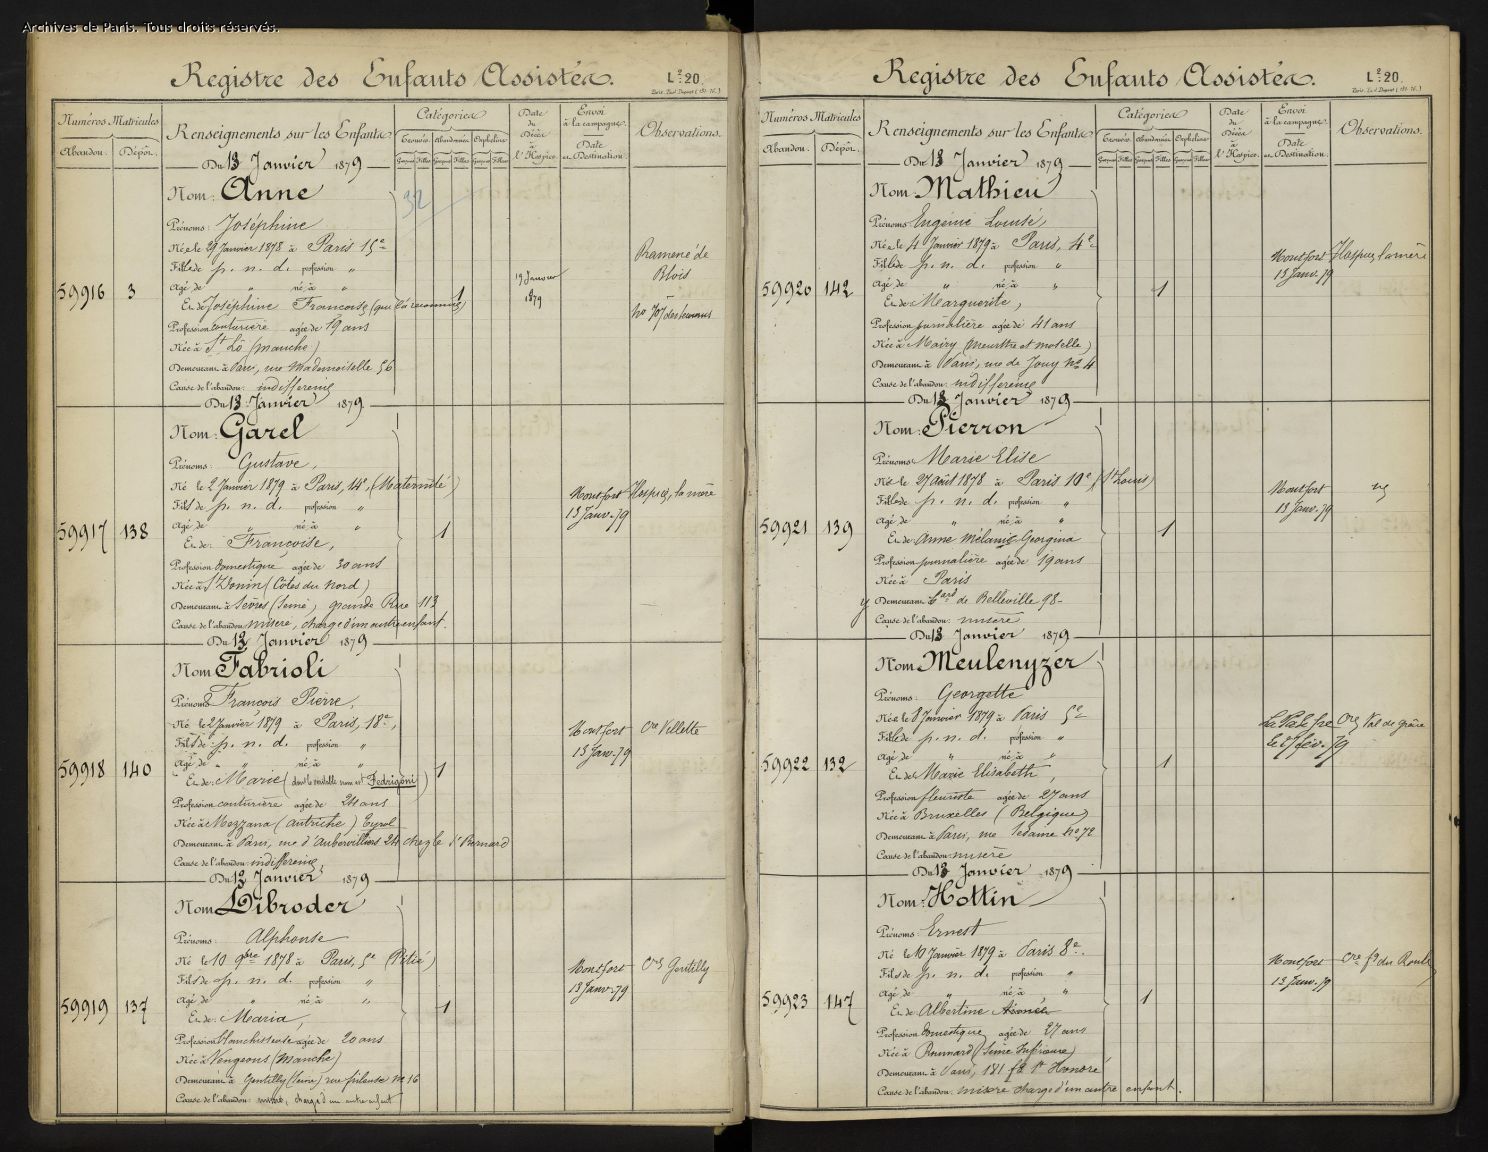 Archives de Paris. Tous droits réservés.
Registre des Enfants Assistés.
L⁰: 20.
Numéros Matricules
Abandon. Dépôt.
Renseignements sur les Enfants
Catégories
Trouvés. Abandonnés Orphelins
Garçons Filles Garçons Filles Garçons Filles
Date du Décès à l'Hospice.
Envoi à la campagne.
Date et Destination.
Observations.
Du 13 Janvier 1879
Nom: Anne
32
Prénoms: Joséphine
Née le 29 Janvier 1878 à Paris 15e
Fille de p. n. d. profession "
Agé de " né à "
59916 3
Et de Joséphine Françoise (qui l'a reconnue)
1
19 Janvier 1879
Ramené de Blois
no 707 des
Profession couturière agée de 19 ans
Née à St Lô (Manche)
Demeurant à Paris, rue Mademoiselle 56
Cause de l'abandon: indifférence
Du 13 Janvier 1879
Nom: Garel
Prénoms: Gustave,
Né le 2 Janvier 1879 à Paris, 14e, (Maternité)
Fils de p. n. d. profession "
Agé de " né à "
59917 138
Et de: Françoise,
1
Montfort
13 Janv. 79
Hospice, la mère
Profession domestique agée de 30 ans
Née à St Donin (Côtes du Nord)
Demeurant à Sèvres (Seine), grande Rue 113
Cause de l'abandon misère, charge d'un autre enfant.
Du 13 Janvier 1879
Nom Fabrioli
Prénoms François Pierre,
Né le 2 Janvier 1879 à Paris, 18e,
Fils de p. n. d. profession "
Agé de " né à "
59918 140
Et de: Marie (dont le véritable nom est Fedrigoni)
1
Montfort
13 Janv. 79
Cre Villette
Profession couturière agée de 24 ans
Née à Mezzana (Autriche) Tyrol
Demeurant à Paris, rue d'Aubervilliers 24 chez le Sr Bernard
Cause de l'abandon: indifférence,
Du 13 Janvier 1879
Nom Libroder
Prénoms: Alphonse
Né le 10 9bre 1878 à Paris, 5e (Pitié)
Fils de p. n. d. profession "
Agé de " né à "
59919 137
Et de: Maria,
1
Montfort
13 Janv. 79
Cre Gentilly
Profession blanchisseuse agée de 20 ans
Née à Vengeons (Manche)
Demeurant à Gentilly (Seine) rue no 16
Cause de l'abandon: misère, charge d'un autre enfant
Registre des Enfants Assistés.
L⁰: 20.
Numéros Matricules
Abandon. Dépôt.
Renseignements sur les Enfants
Catégories
Trouvés. Abandonnés Orphelins
Garçons Filles Garçons Filles Garçons Filles
Date du Décès à l'Hospice.
Envoi à la campagne.
Date et Destination.
Observations.
Du 13 Janvier 1879
Nom: Mathieu
Prénoms: Eugénie Louise,
Née le 4 Janvier 1879 à Paris, 4e
Fille de p. n. d. profession "
Agé de " né à "
59920 142
Et de Marguerite,
1
Montfort
13 Janv. 79
Hospice, la mère
Profession journalière agée de 41 ans
Née à Mairy (Meurthe et Moselle)
Demeurant à Paris, rue de Jouy no 4
Cause de l'abandon: indifférence
Du 13 Janvier 1879
Nom: Pierron
Prénoms: Marie Elise
Née le 27 août 1878 à Paris 10e, (St Louis)
Fille de p. n. d. profession "
Agé de " né à "
59921 139
Et de: Anne Mélanie Georgina
1
Montfort
13 Janv. 79
Profession journalière agée de 19 ans
Née à Paris
Demeurant Bard de Belleville 98
Cause de l'abandon: misère
Du 13 Janvier 1879
Nom Meulenyzer
Prénoms: Georgette
Née le 8 Janvier 1879 à Paris 5e
Fille de p. n. d. profession "
Agé de " né à "
59922 132
Et de Marie Elisabeth,
1
Cre Val de grâce
Profession fleuriste agée de 27 ans
Née à Bruxelles (Belgique)
Demeurant à Paris, rue Sedaine no 72
Cause de l'abandon misère
Du 13 Janvier 1879
Nom: Hottin
Prénoms: Ernest
Né le 10 Janvier 1879 à Paris 8e.
Fils de p. n. d. profession "
Agé de " né à "
59923 147
Et de: Albertine
1
Montfort
13 Janv. 79
Cre fg du Roule
Profession domestique agée de 27 ans
Née à (Seine Inférieure)
Demeurant à Paris, 181 fg St Honoré
Cause de l'abandon: misère charge d'un autre enfant.